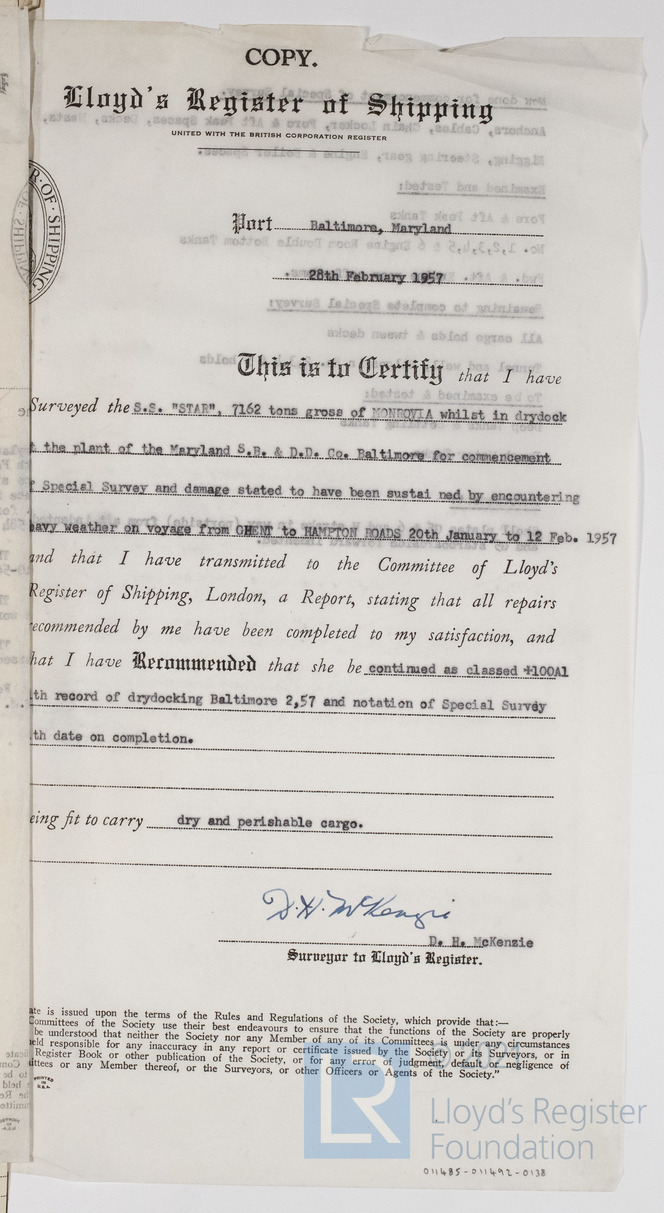 COPY.
Lloyd's Register of Shipping
UNITED WITH THE BRITISH CORPORATION REGISTER
R·OF·SHIPPING
Port Baltimore, Maryland
28th February 1957
This is to Certify that I have
Surveyed the S.S. "STAR", 7162 tons gross of MONROVIA whilst in drydock
the plant of the Maryland S.B. & D.D. Co. Baltimore for commencement
f Special Survey and damage stated to have been sustai ned by encountering
eavy weather on voyage from GHENT to HAMPTON ROADS 20th January to 12 Feb. 1957
and that I have transmitted to the Committee of Lloyd's
Register of Shipping, London, a Report, stating that all repairs
ecommended by me have been completed to my satisfaction, and
hat I have Recommended that she be continued as classed +100A1
th record of drydocking Baltimore 2,57 and notation of Special Survey
th date on completion.
eing fit to carry dry and perishable cargo.
D. H. McKenzie
D. H. McKenzie
Surveyor to Lloyd's Register.
ate is issued upon the terms of the Rules and Regulations of the Society, which provide that:—
Committees of the Society use their best endeavours to ensure that the functions of the Society are properly
be understood that neither the Society nor any Member of any of its Committees is under any circumstances
eld responsible for any inaccuracy in any report or certificate issued by the Society or its Surveyors, or in
Register Book or other publication of the Society, or for any error of judgment, default or negligence of
ittees or any Member thereof, or the Surveyors, or other Officers or Agents of the Society."
PRINTED IN U.S.A.
LR
Lloyd's Register
Foundation
011485-011492-0138